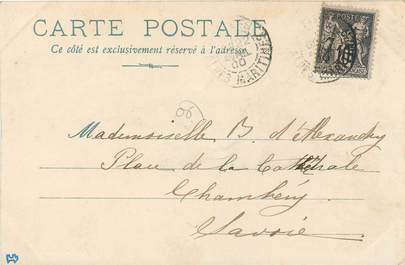 CARTE POSTALE
Ce côté est exclusivement réservé à l'adresse
POSTE
MARITIMES
Mademoiselle B. d'Alexandry
Place de la Cathédrale
Chambéry
Savoie